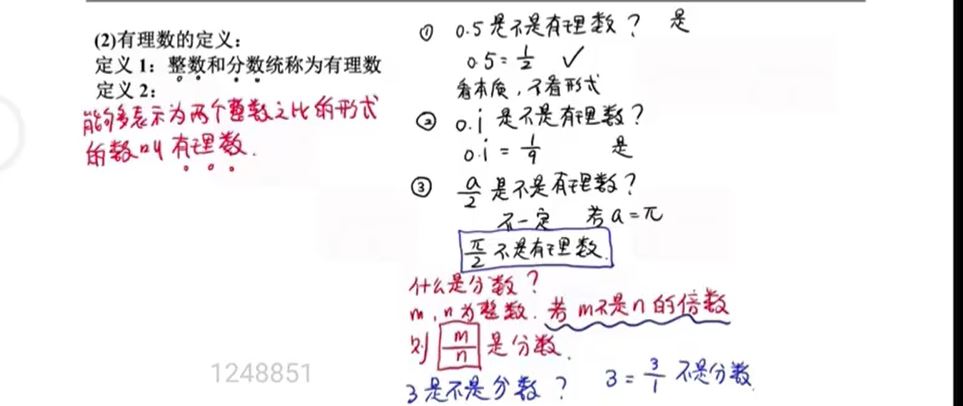 (2)有理数的定义：
定义 1：整数和分数统称为有理数
定义 2：
能够表示为两个整数之比的形式
的数叫有理数.
① 0.5是不是有理数？ 是
0.5=1/2 ✓
看本质，不看形式
② 0.i̇ 是不是有理数？
0.i̇ = 1/9 是
③ a/2 是不是有理数？
不一定 若a=π
π/2 不是有理数.
什么是分数？
m，n为整数. 若m不是n的倍数
则 m/n 是分数.
3是不是分数？ 3=3/1 不是分数.
1248851